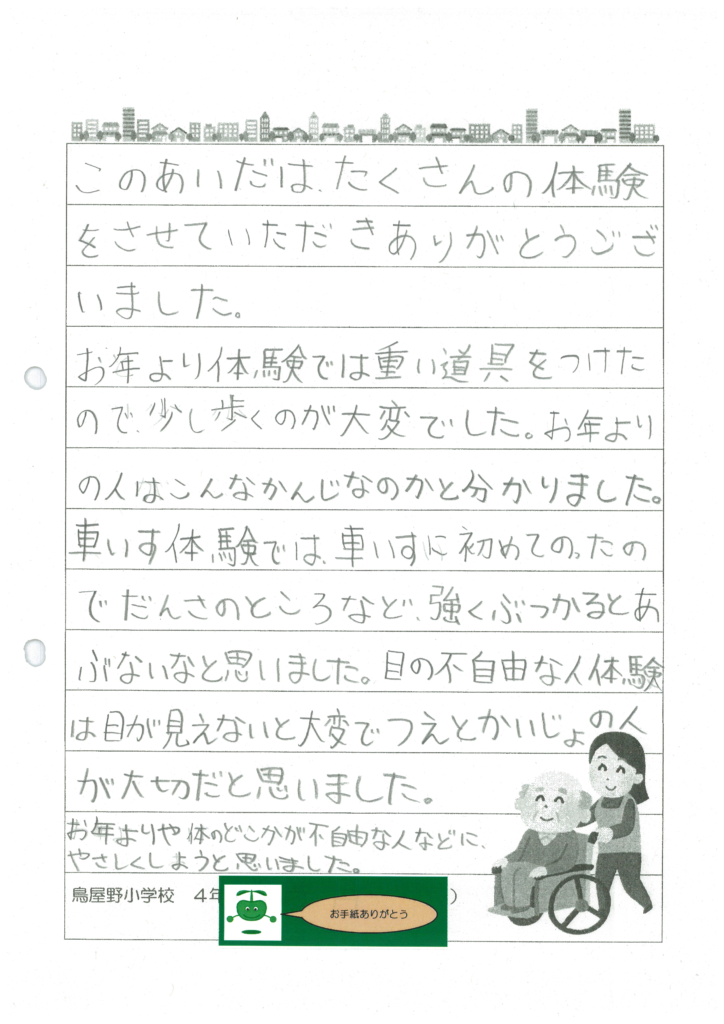 このあいだは、たくさんの体験
をさせていただきありがとうござ
いました。
お年より体験では重い道具をつけた
ので、少し歩くのが大変でした。お年より
の人はこんなかんじなのかと分かりました。
車いす体験では、車いすに初めてのったの
でだんさのところなど、強くぶつかるとあ
ぶないなと思いました。目の不自由な人体験
は目が見えないと大変でつえとかいじょの人
が大切だと思いました。
お年よりや体のどこかが不自由な人などに、
やさしくしようと思いました。
鳥屋野小学校 4年 )
お手紙ありがとう